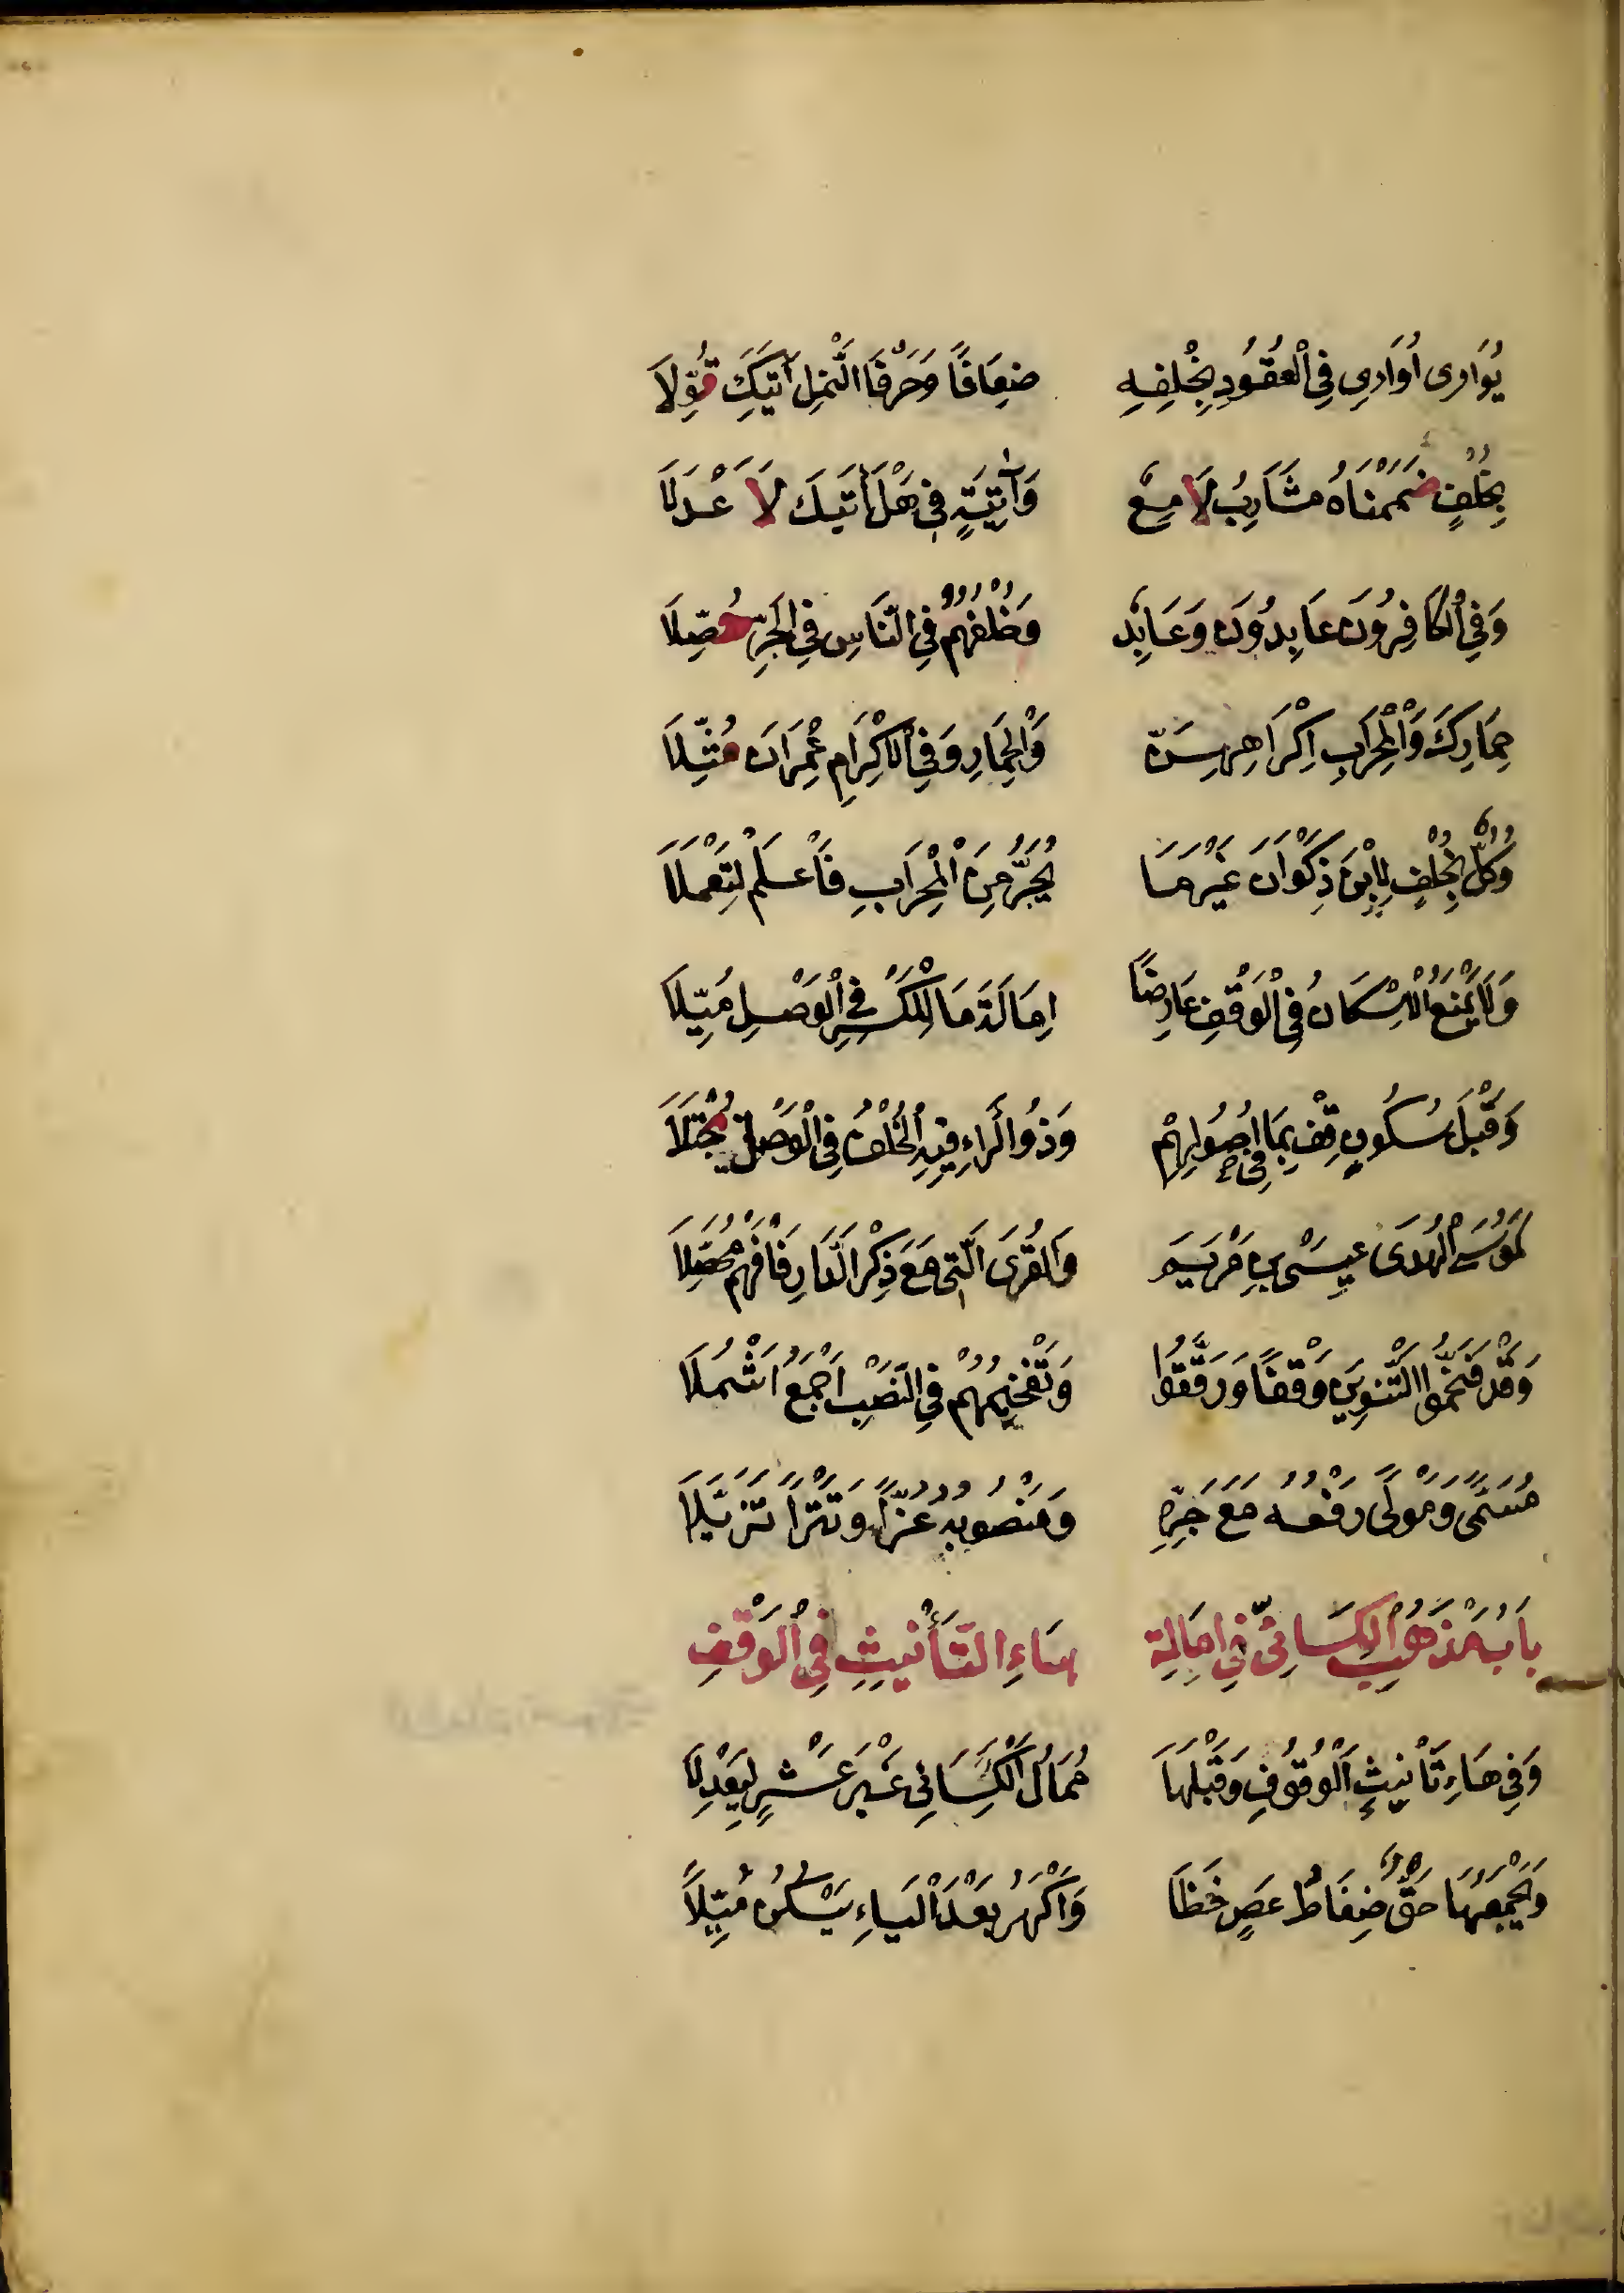 يُوَارِى أُوَارِى فِى الْعُقُودِ بِخُلْفِهِ ضِعَافًا وَحَرْفَا النَّمْلِ آتِيكَ قُوِّلَا
بِخُلْفٍ ضَمَمْنَاهُ مَشَارِبُ لَامِعٌ وَآنِيَةٍ فِى هَلْ أَتَيكَ لَا عْدَلَا
وَفِى الْكَافِرُونَ عَابِدُونَ وَعَابِدٌ وَخُلْفُهُمُ فِى النَّاسِ فِى الْجَرِّ حُصِّلَا
حِمَارِكَ وَالْمِحْرَابِ إِكْرَاهِهِنَّ وَالْحِمَارِ وَفِى الْاِكْرَامِ عِمْرَانَ مُثِّلَا
وَكُلٌّ بِخُلْفٍ لِابْنِ ذَكْوَانَ غَيْرَ مَا يُجَرُّ مِنَ الْمِحْرَابِ فَاعْلَمْ لِتَعْمَلَا
وَلَا يَمْنَعُ الْاِسْكَانُ فِى الْوَقْفِ عَارِضًا اِمَالَةَ مَا لِلْكَسْرِ فِى الْوَصْلِ مُيِّلَا
وَقَبْلَ سُكُونٍ قِفْ بِمَا فِى اُصُولِهِمْ وَذُو الرَّاءِ فِيهِ الْخُلْفُ فِى الْوَصْلِ يُجْتَلَا
لِمُوسَى الْهُدَى عِيسَى بْنِ مَرْيَمَ وَالْقُرَى الَّتِى مَعَ ذِكْرَى الدَّارِ فَافْهَمْ مُحَصِّلَا
وَقَدْ فَخَّمُوا التَّنْوِينَ وَقْفًا وَرَقَّقُوا وَتَفْخِيمُهُمْ فِى النَّصْبِ اَجْمَعُ اَشْمُلَا
مُسَمًّى وَمَوْلًى رَفْعُهُ مَعَ جَرِّهِ وَمَنْصُوبُهُ غُزًّى وَتَتْرًا تَزَيَّلَا
بَابُ مَذْهَبِ الْكِسَائِىِّ فِى اِمَالَةِ هَاءِ التَّأْنِيثِ فِى الْوَقْفِ
وَفِى هَاءِ تَأْنِيثِ الْوُقُوفِ وَقَبْلَهَا مُمَالُ الْكِسَائِى غَيْرَ عَشْرٍ لِيَعْدِلَا
وَيَجْمَعُهَا حَقٌّ ضِغَاطُ عَصٍ خَظَا وَاَكْهَرُ بَعْدَ الْيَاءِ يَسْكُنُ مُيِّلَا